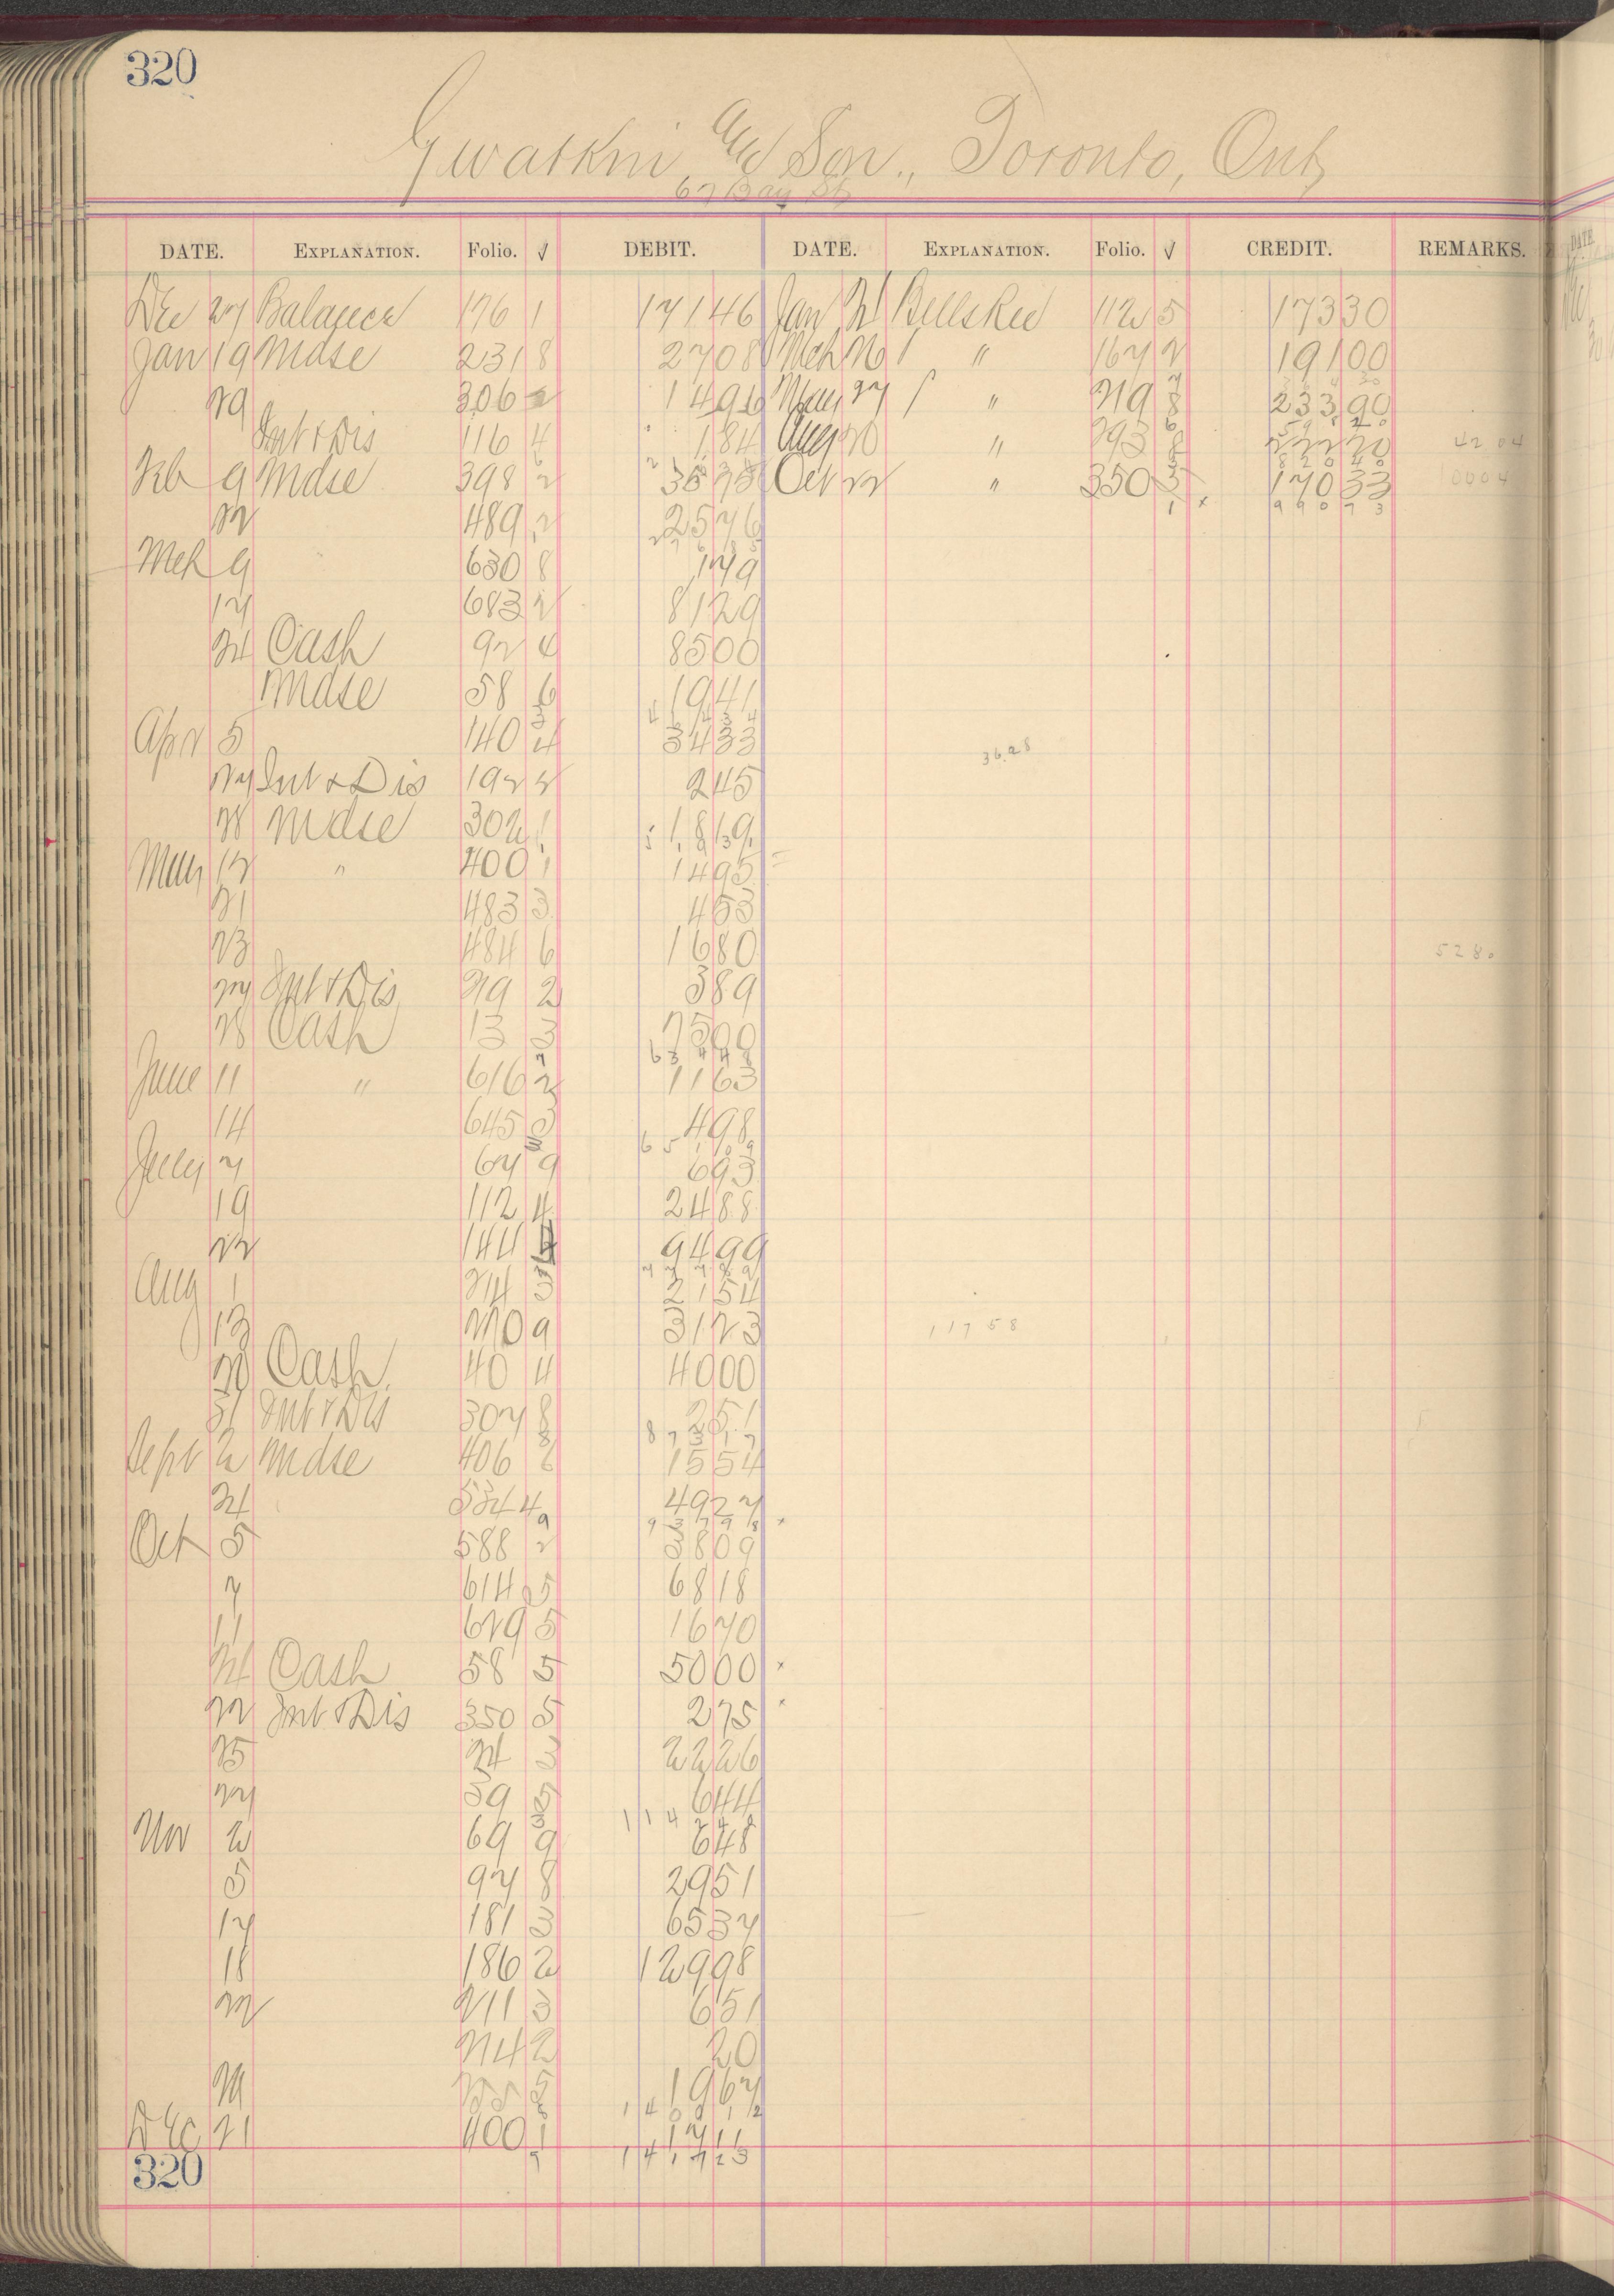 320
Gwatkin and Son., Toronto, Ont
67 Bay St
DATE. EXPLANATION. Folio. √ DEBIT. DATE. EXPLANATION. Folio. √ CREDIT. REMARKS.
Dec 27 Balance 176 1 17146 Jan 21 Bills Rec 112 5 17330
Jan 19 Mdse 231 8 2708 Mch 26 " 167 2 19100
29 306 2 1496 May 27 " 219 8 23390
Int & Dis 116 4 184 Aug 20 " 293 8 22220 4204
Feb 9 Mdse 398 2 3575 Oct 22 " 350 3 17033 0004
22 489 2 2576 99073
Mch 9 630 8 179
17 683 2 8129
24 Cash 92 4 8500
Mdse 58 6 1941
Apr 5 140 4 3433 3628
27 Int & Dis 192 2 245
28 Mdse 302 1 1819
May 12 " 400 1 1495
21 483 3 453
23 484 6 1680 5280
27 Int & Dis 219 2 389
28 Cash 13 3 7500
June 11 " 616 2 1163
14 645 3 498
July 7 67 9 693
19 112 4 2488
22 144 9499
Aug 1 214 3 2154
13 270 9 3123 11758
20 Cash 40 4 4000
31 Int & Dis 307 8 251
87317
Sept 2 Mdse 406 6 1554
24 534 4 4927
93798
Oct 5 588 2 3809
7 614 5 6818
11 629 5 1670
24 Cash 58 5 5000
22 Int & Dis 350 5 275
25 24 3 2226
27 39 5 644
Nov 2 69 9 648
5 97 8 2951
17 181 3 6537
18 186 2 12998
22 211 3 651
214 2 20
1967
Dec 21 400 1 1711
141723
320